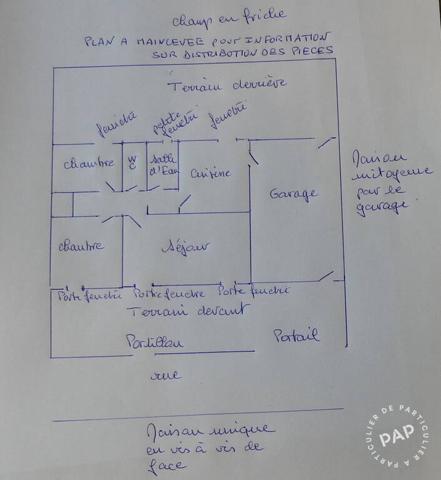 champ en friche
PLAN A MAINLEVEE POUR INFORMATION
SUR DISTRIBUTION DES PIECES
Terrain derrière
fenêtre
petite
fenêtre
fenêtre
chambre
WC
Salle
d'Eau
Cuisine
Garage
Maison
mitoyenne
par le
garage.
chambre
Séjour
Porte fenêtre
Porte fenêtre
Porte fenêtre
Terrain devant
Portillon
Portail
rue
Maison unique
en vis à vis de
face
DE PARTICULIER À PARTICULIER
PAP